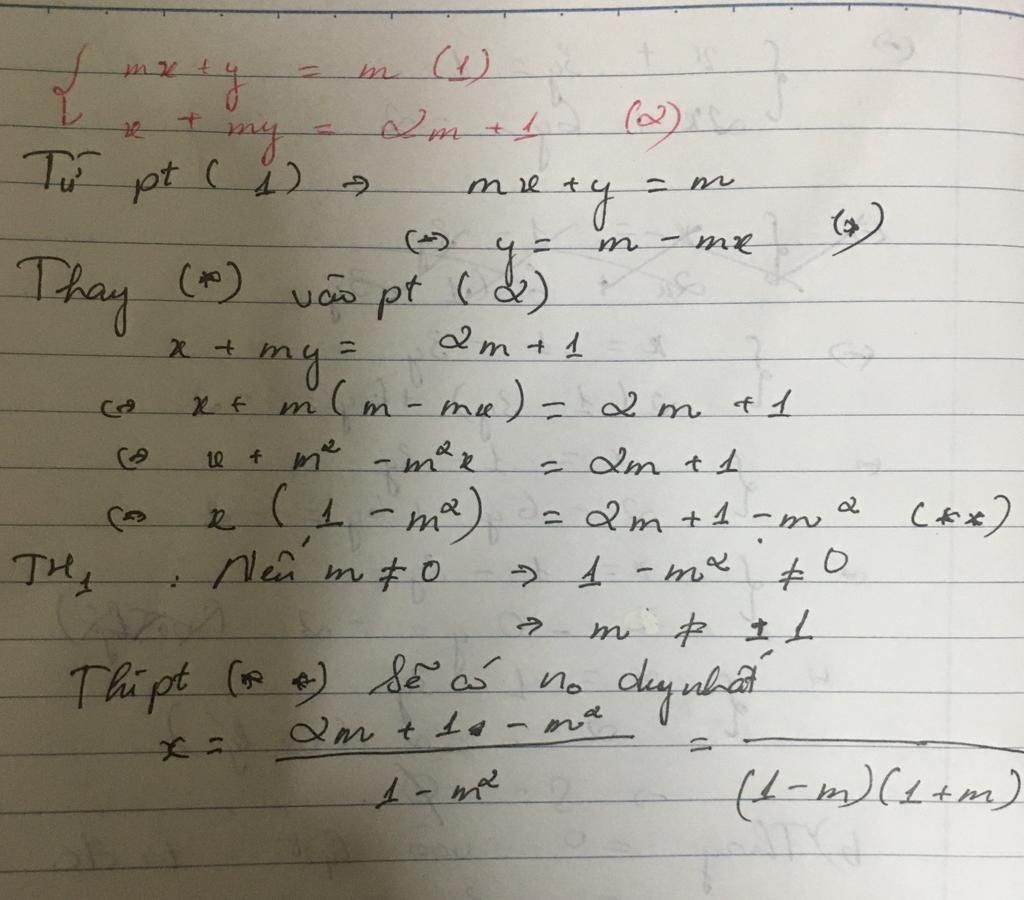 { mx + y = m (1)
x + my = 2m + 1 (2)
Từ pt (1) => mx + y = m
<=> y = m - mx (*)
Thay (*) vào pt (2)
x + my = 2m + 1
<=> x + m(m - mx) = 2m + 1
<=> x + m² - m²x = 2m + 1
<=> x (1 - m²) = 2m + 1 - m² (**)
TH₁ : Nếu m ≠ 0 => 1 - m² ≠ 0
=> m ≠ ± 1
Thì pt (**) sẽ có no duy nhất
x = (2m + 1 - m²) / (1 - m²) = / (1-m)(1+m)